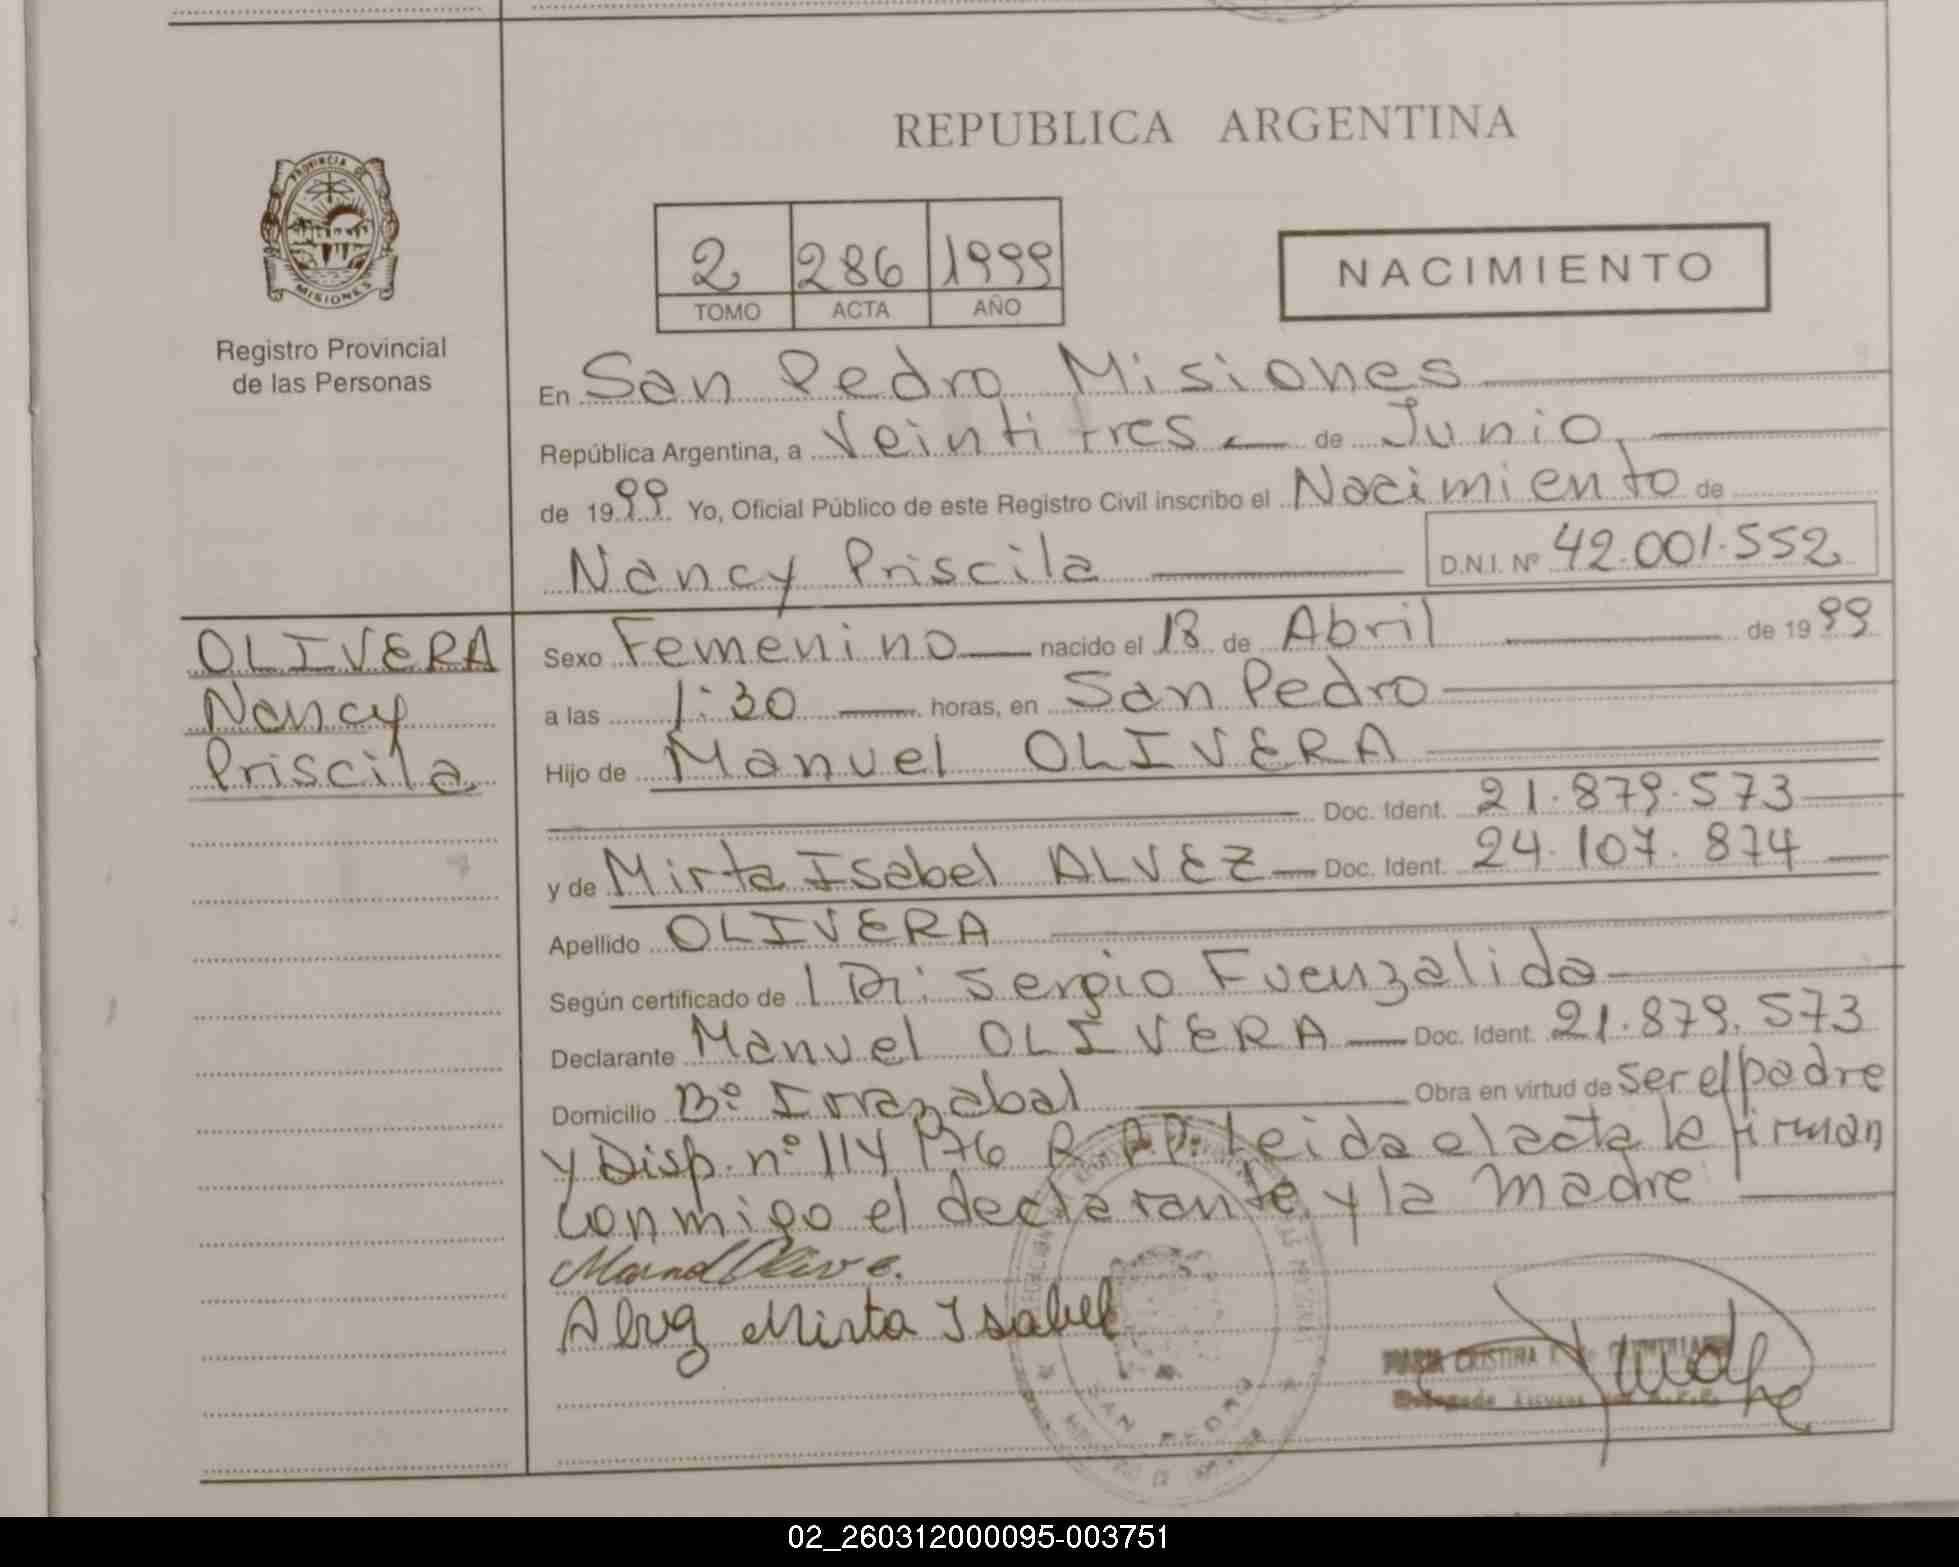 REPUBLICA ARGENTINA
PROVINCIA DE
MISIONES
Registro Provincial
de las Personas
2 286 1999
TOMO ACTA AÑO
NACIMIENTO
En San Pedro Misiones
República Argentina, a Veintitres de Junio
de 1999 Yo, Oficial Público de este Registro Civil inscribo el Nacimiento de
Nancy Priscila D.N.I. Nº 42.001.552
OLIVERA
Nancy
Priscila
Sexo Femenino nacido el 18 de Abril de 1999
a las 1:30 horas, en San Pedro
Hijo de Manuel OLIVERA
Doc. Ident. 21.879.573
y de Mirta Isabel ALVEZ Doc. Ident. 24.107.874
Apellido OLIVERA
Según certificado de Dr: Sergio Fuenzalida
Declarante Manuel OLIVERA Doc. Ident. 21.879.573
Domicilio Bº Irrazabal Obra en virtud de ser el padre
y Disp. nº 114/76 R.P.P. Leida el acta la firman
conmigo el declarante y la madre
Manuel Olive
Alvez Mirta Isabel
SAN PEDRO
MARIA CRISTINA
Delegada
02_260312000095-003751